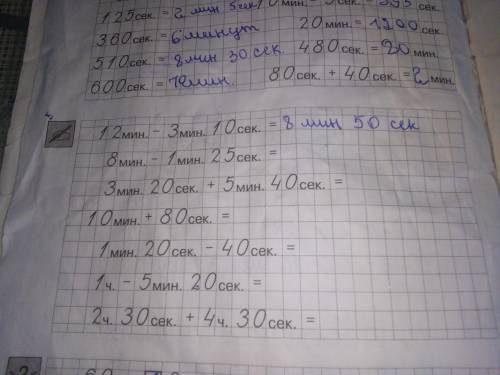 125сек. = 2 мин 5сек
360сек. = 6минут
20мин. = 1200 сек.
510сек. = 8 мин 30 сек.
480сек. = 20 мин.
600сек. = 10мин.
80сек. + 40сек. = 2 мин.
12мин. - 3мин. 10сек. = 8 мин 50 сек
8мин. - 1мин. 25сек. =
3мин. 20сек. + 5мин. 40сек. =
10мин. + 80сек. =
1мин. 20сек. - 40сек. =
1ч. - 5мин. 20сек. =
2ч. 30сек. + 4ч. 30сек. =